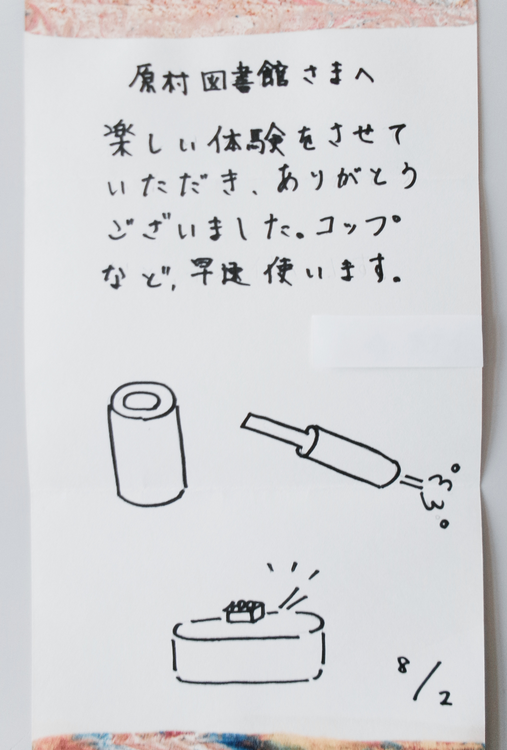 原村図書館さまへ
楽しい体験をさせて
いただき、ありがとう
ございました。コップ
など、早速使います。
8/2